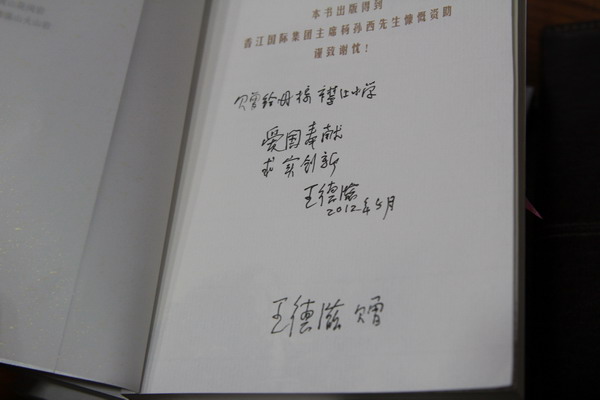 本书出版得到
香江国际集团主席杨孙西先生慷慨资助
谨致谢忱！
赠给母校 襟江小学
爱国奉献
求实创新
王德滋
2012年5月
王德滋 赠